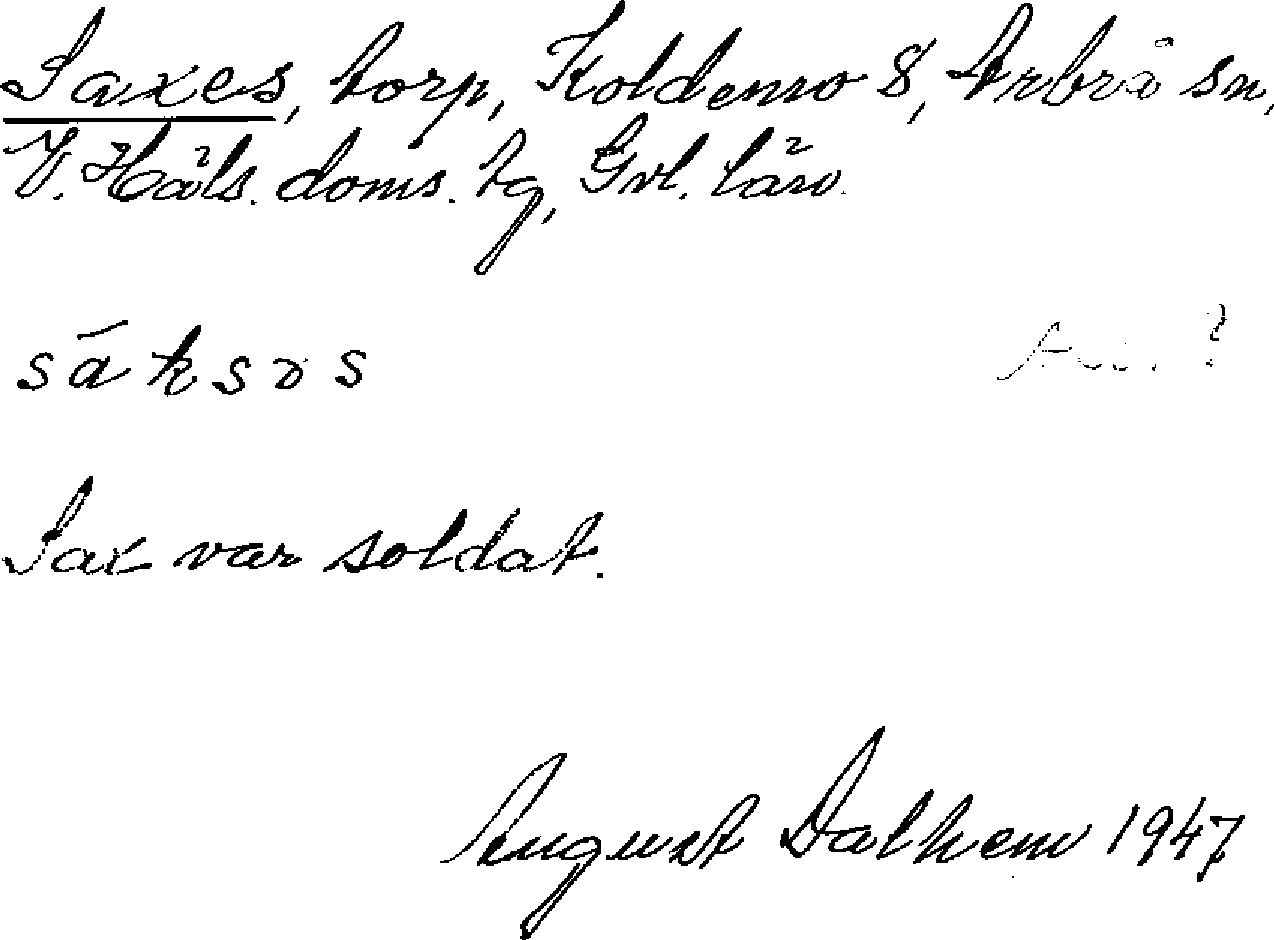 Saxes, torp, Koldemo 8, Arbrå sn,
V. Häls. doms. tg, Gvl. län.
sāksəs
Sax var soldat.
August Dalhem 1947